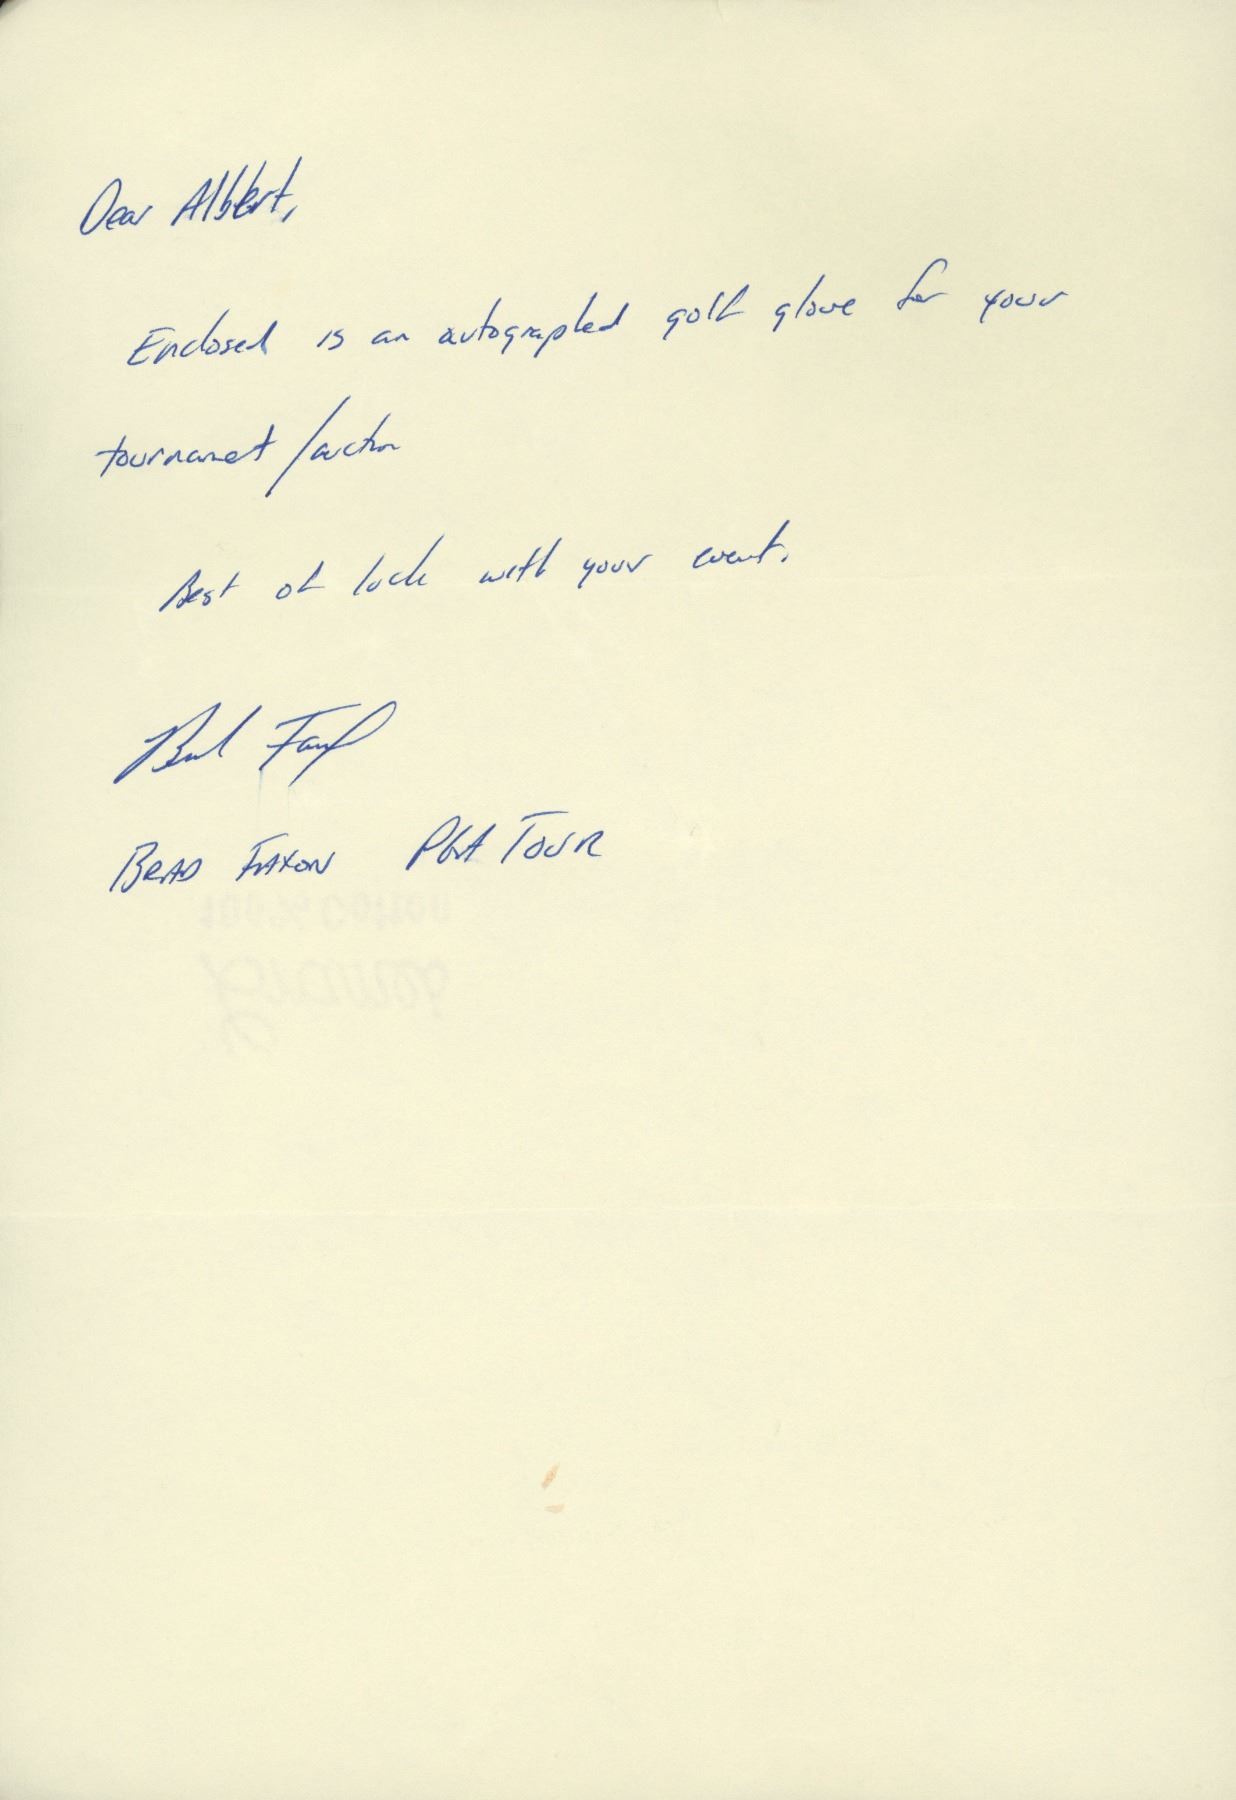 Dear Albert,
Enclosed is an autographed golf glove for your
tournamet / auction
Best of luck with your event.
Brad Faxon
BRAD FAXON PGA TOUR
100% Cotton